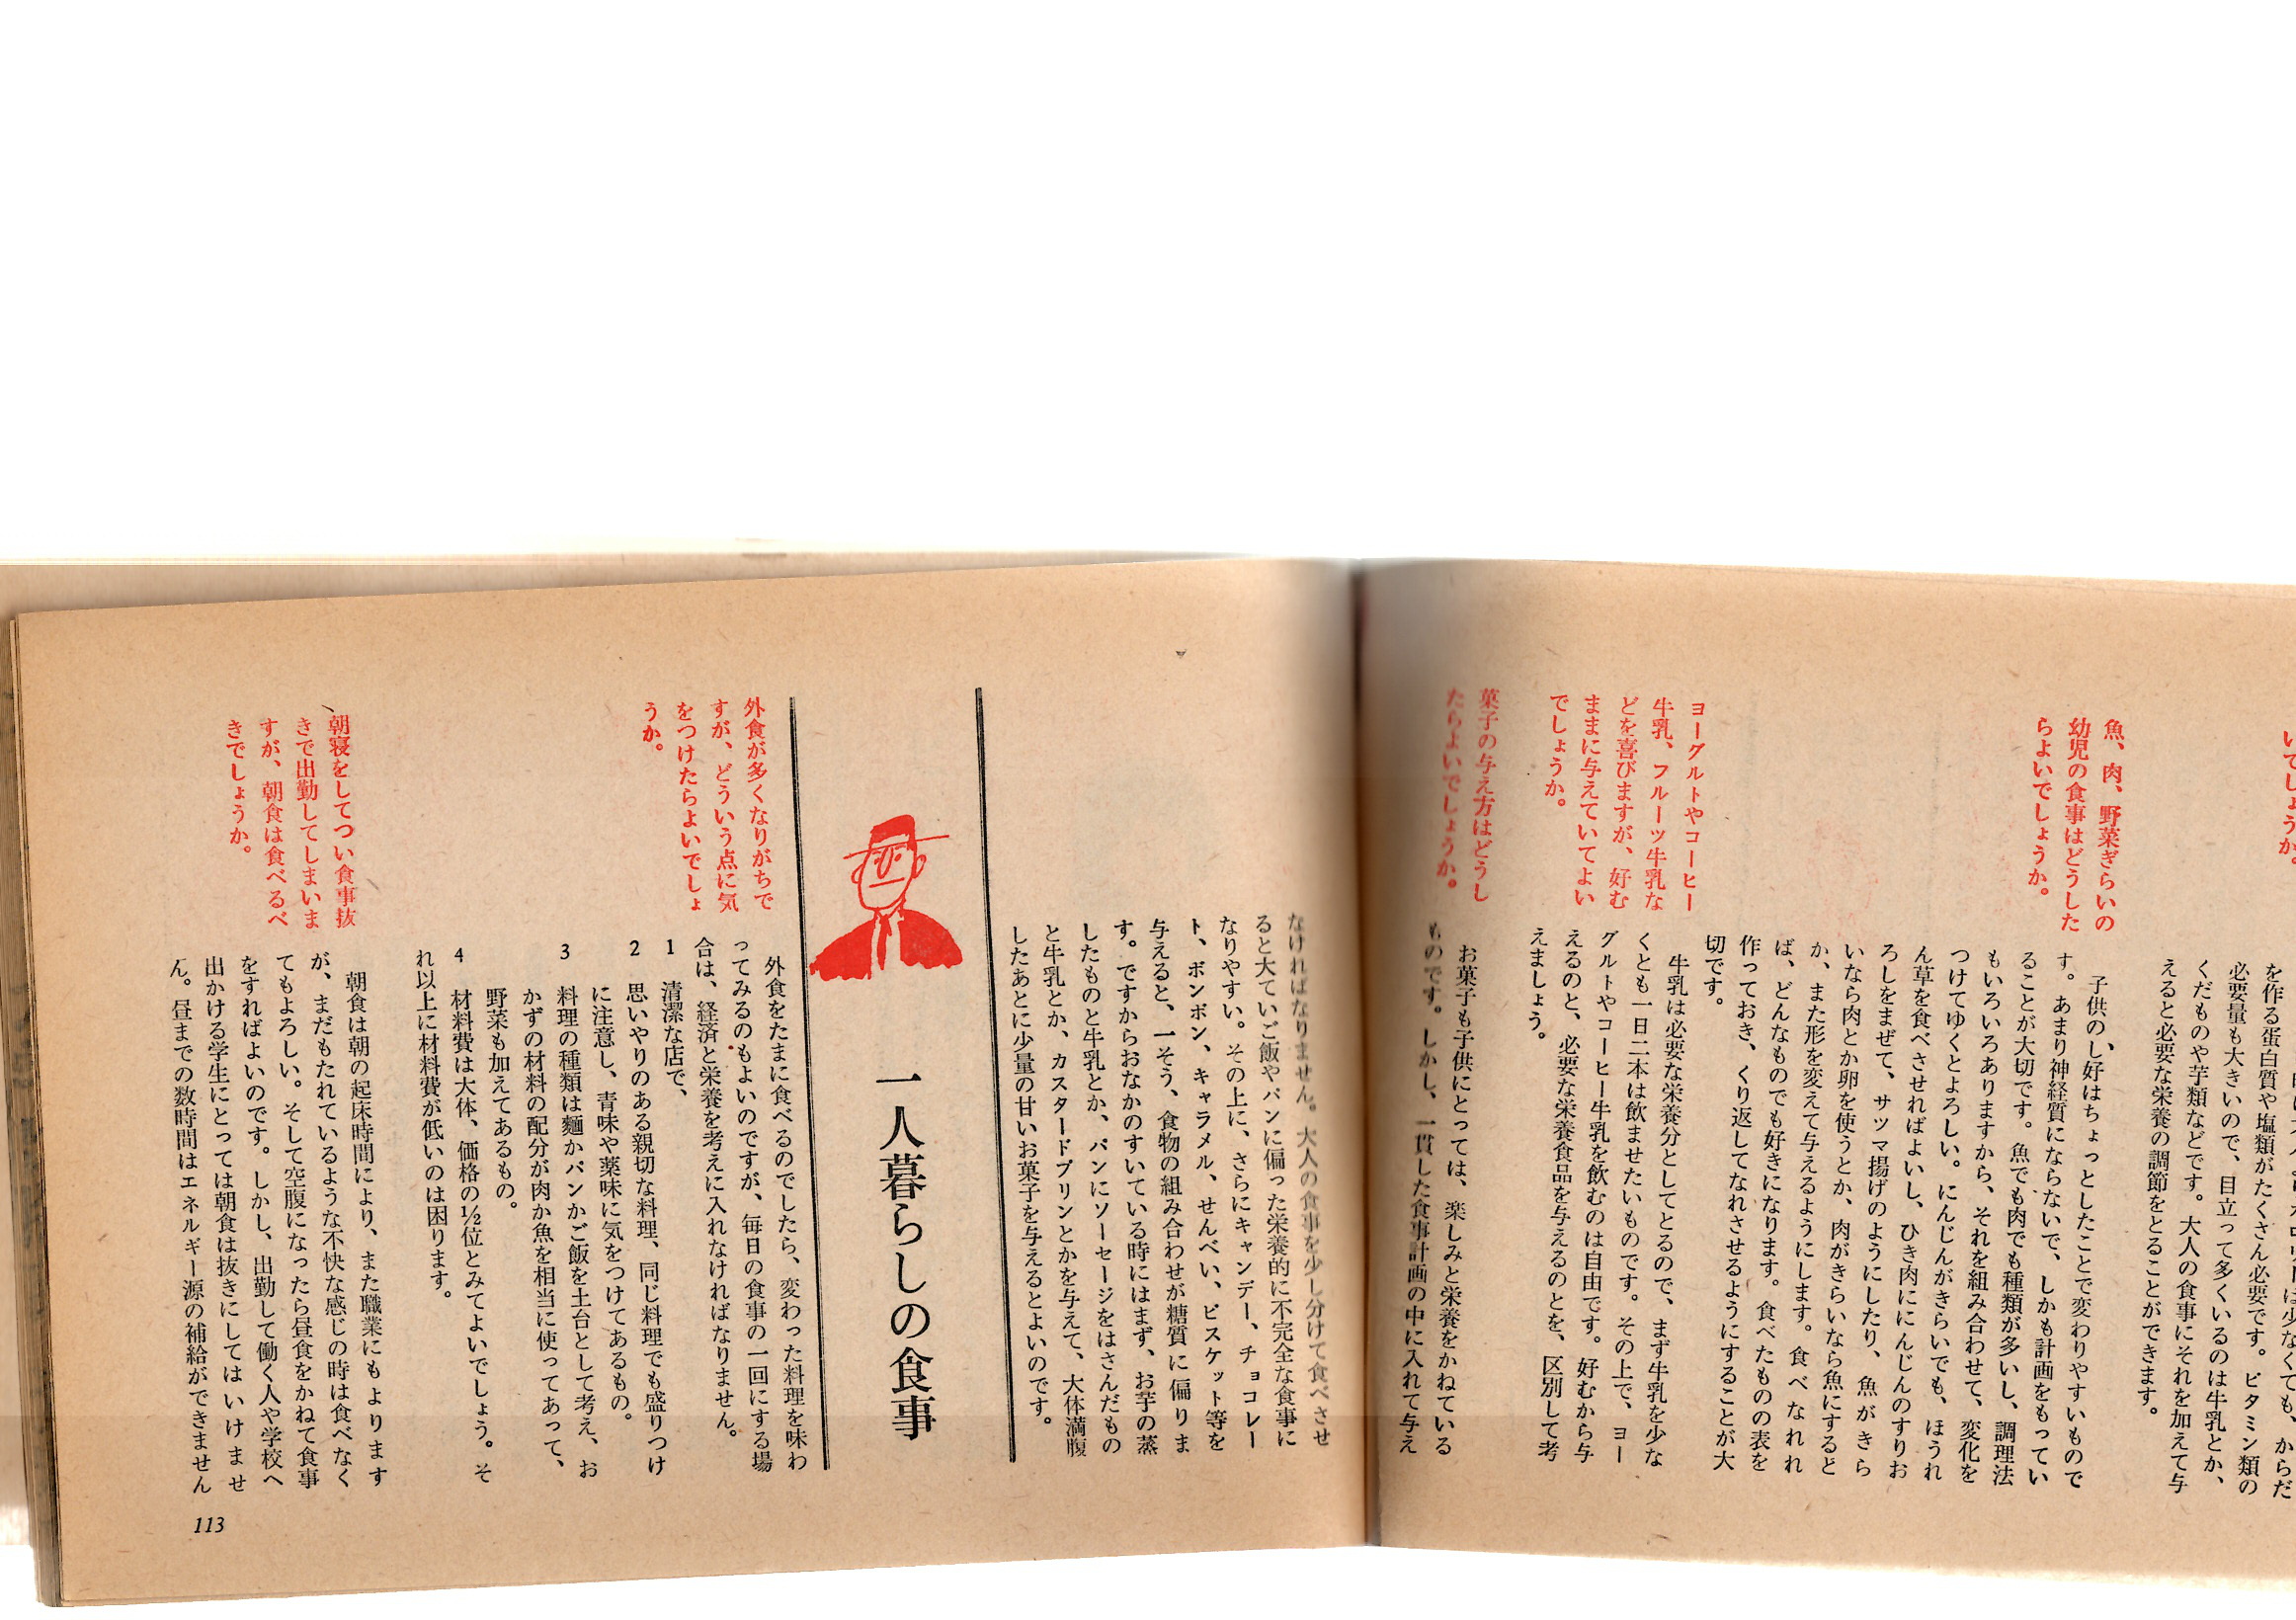 いでしょうか。
は少なくても、からだ
を作る蛋白質や塩類がたくさん必要です。ビタミン類の
必要量も大きいので、目立って多くいるのは牛乳とか、
くだものや芋類などです。大人の食事にそれを加えて与
えると必要な栄養の調節をとることができます。
魚、肉、野菜ぎらいの
幼児の食事はどうした
らよいでしょうか。
子供のし好はちょっとしたことで変わりやすいもので
す。あまり神経質にならないで、しかも計画をもってい
ることが大切です。魚でも肉でも種類が多いし、調理法
もいろいろありますから、それを組み合わせて、変化を
つけてゆくとよろしい。にんじんがきらいでも、ほうれ
ん草を食べさせればよいし、ひき肉ににんじんのすりお
ろしをまぜて、サツマ揚げのようにしたり、魚がきら
いなら肉とか卵を使うとか、肉がきらいなら魚にすると
か、また形を変えて与えるようにします。食べなれれ
ば、どんなものでも好きになります。食べたものの表を
作っておき、くり返してなれさせるようにすることが大
切です。
ヨーグルトやコーヒー
牛乳、フルーツ牛乳な
どを喜びますが、好む
ままに与えていてよい
でしょうか。
牛乳は必要な栄養分としてとるので、まず牛乳を少な
くとも一日二本は飲ませたいものです。その上で、ヨー
グルトやコーヒー牛乳を飲むのは自由です。好むから与
えるのと、必要な栄養食品を与えるのとを、区別して考
えましょう。
菓子の与え方はどうし
たらよいでしょうか。
お菓子も子供にとっては、楽しみと栄養をかねている
ものです。しかし、一貫した食事計画の中に入れて与え
なければなりません。大人の食事を少し分けて食べさせ
ると大ていご飯やパンに偏った栄養的に不完全な食事に
なりやすい。その上に、さらにキャンデー、チョコレー
ト、ボンボン、キャラメル、せんべい、ビスケット等を
与えると、一そう、食物の組み合わせが糖質に偏りま
す。ですからおなかのすいている時にはまず、お芋の蒸
したものと牛乳とか、パンにソーセージをはさんだもの
と牛乳とか、カスタードプリンとかを与えて、大体満腹
したあとに少量の甘いお菓子を与えるとよいのです。
一人暮らしの食事
外食が多くなりがちで
すが、どういう点に気
をつけたらよいでしょ
うか。
外食をたまに食べるのでしたら、変わった料理を味わ
ってみるのもよいのですが、毎日の食事の一回にする場
合は、経済と栄養を考えに入れなければなりません。
1 清潔な店で、
2 思いやりのある親切な料理、同じ料理でも盛りつけ
に注意し、青味や薬味に気をつけてあるもの。
3 料理の種類は麺かパンかご飯を土台として考え、お
かずの材料の配分が肉か魚を相当に使ってあって、
野菜も加えてあるもの。
4 材料費は大体、価格の½位とみてよいでしょう。そ
れ以上に材料費が低いのは困ります。
朝寝をしてつい食事抜
きで出勤してしまいま
すが、朝食は食べるべ
きでしょうか。
朝食は朝の起床時間により、また職業にもよります
が、まだもたれているような不快な感じの時は食べなく
てもよろしい。そして空腹になったら昼食をかねて食事
をすればよいのです。しかし、出勤して働く人や学校へ
出かける学生にとっては朝食は抜きにしてはいけませ
ん。昼までの数時間はエネルギー源の補給ができません
113